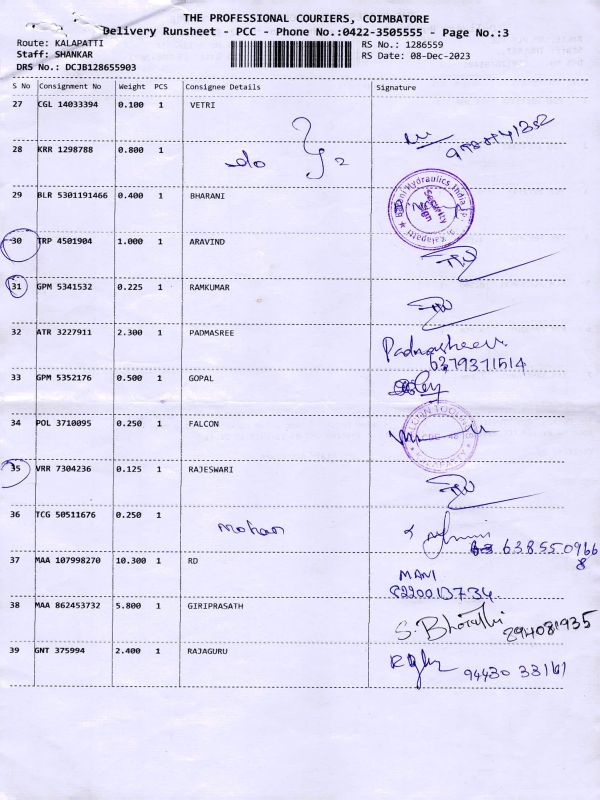 THE PROFESSIONAL COURIERS, COIMBATORE
Delivery Runsheet - PCC - Phone No.:0422-3505555 - Page No.:3
Route: KALAPATTI RS No.: 1286559
Staff: SHANKAR RS Date: 08-Dec-2023
DRS No.: DCJB128655903
S No Consignment No Weight PCS Consignee Details Signature
27 CGL 14033394 0.100 1 VETRI
28 KRR 1298788 0.800 1 do
29 BLR 5301191466 0.400 1 BHARANI
Hydraulics India
Security
30 TRP 4501904 1.000 1 ARAVIND
31 GPM 5341532 0.225 1 RAMKUMAR
32 ATR 3227911 2.300 1 PADMASREE Padmashree
6379371514
33 GPM 5352176 0.500 1 GOPAL
34 POL 3710095 0.250 1 FALCON
35 VRR 7304236 0.125 1 RAJESWARI
36 TCG 50511676 0.250 1 mohan
37 MAA 107998270 10.300 1 RD MANI
38 MAA 862453732 5.800 1 GIRIPRASATH S. Bharathi
39 GNT 375994 2.400 1 RAJAGURU 94430 33161